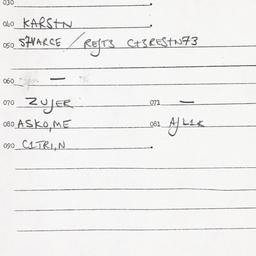 030
040 KARStN
050 S7VARCE / REJT3 Ct3REStN73
060 —
070 ZUJER 071 —
080 ASKO,ME 081 AJL1K
090 C1TRI,N